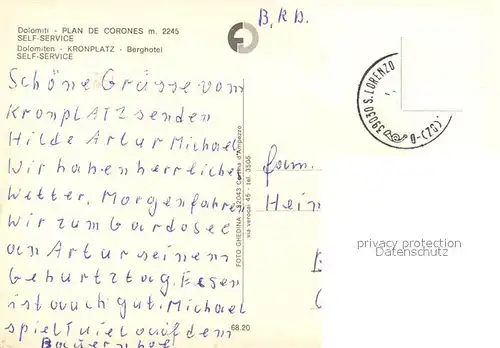 Dolomiti - PLAN DE CORONES m. 2245
SELF-SERVICE
Dolomiten - KRONPLATZ - Berghotel
SELF-SERVICE
B.R.D.
Schöne Grüsse vom
KronPLATZ senden
Hilde Artur Michael
Wir haben herrliches
Wetter. Morgen fahren
wir zum Gardosee
an Artur seinem
Geburtztag. Essen
ist auch gut. Michael
spielt viel auf dem
Bauernhof
FOTO GHEDINA - 32043 Cortina d'Ampezzo
via verocai 46 - tel. 3606
68.20
39030 S. LORENZO
(BZ)-0
fam.
Hein
privacy protection
Datenschutz